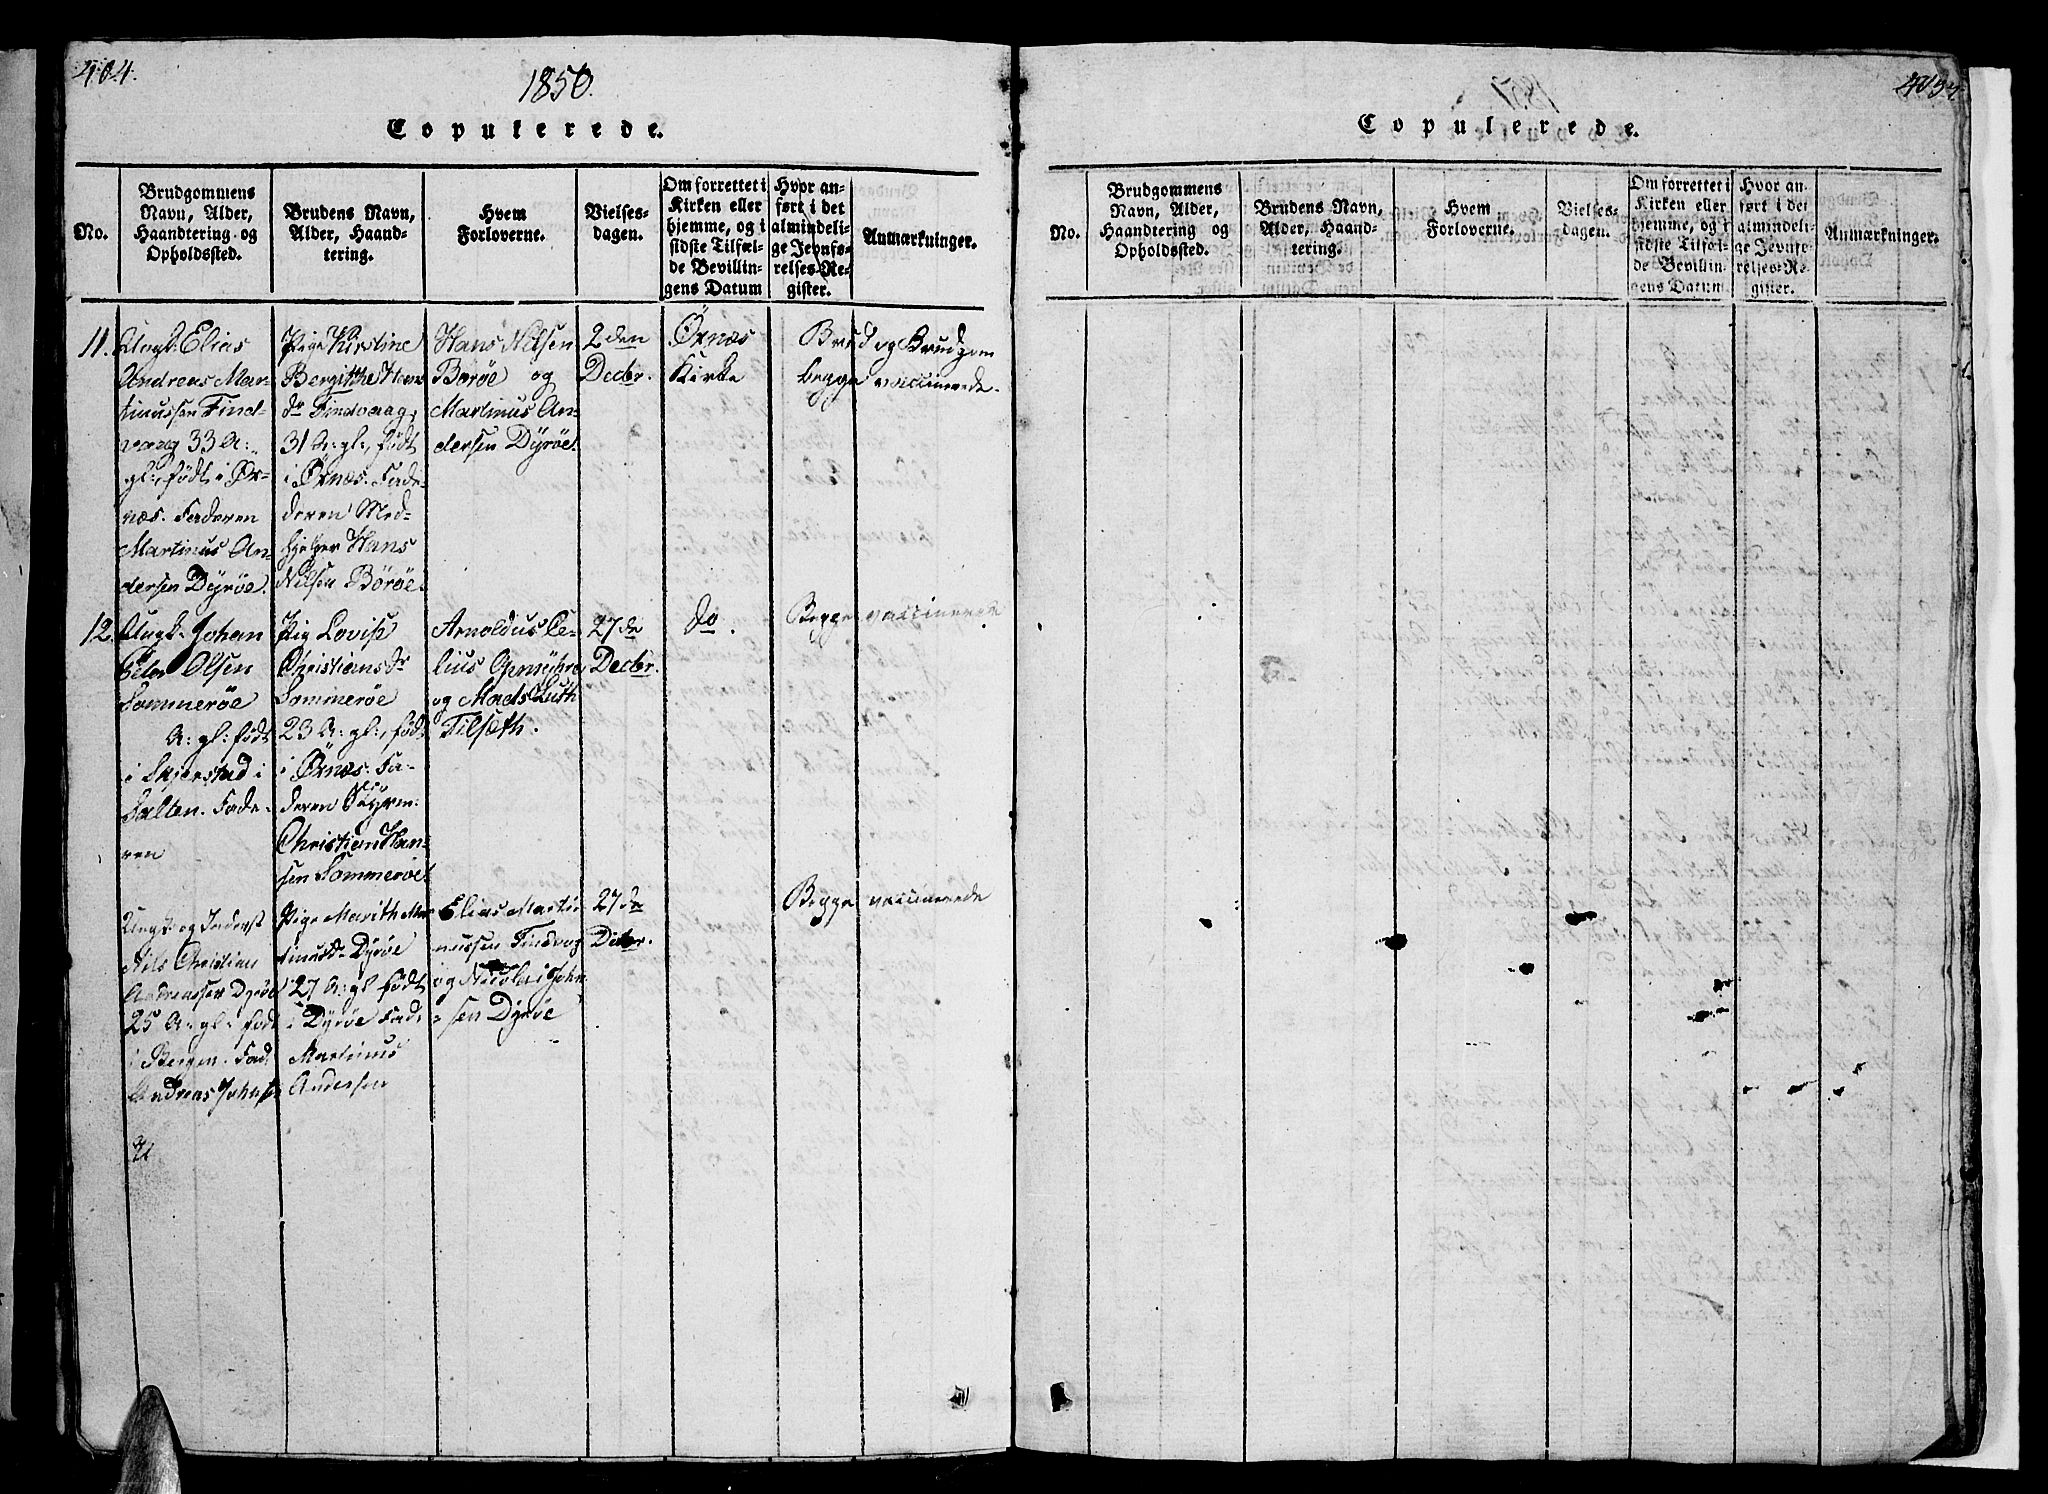 404.
1850.
Copulerede.
No.
Brudgommens
Navn, Alder,
Haandtering og
Opholdssted.
Brudens Navn,
Alder, Haand-
tering.
Hvem
Forloverne.
Vielses-
dagen.
Om forrettet i
Kirken eller
hjemme, og i
sidste Tilfæl-
de Bevillin-
gens Datum
Hvor an-
ført i det
almindeli-
ge Jevnfø-
relses-Re-
gister.
Anmærkninger.
11.
Ungk: Elias
Andreas Mar-
tinussen Find-
vaag 33 A:
gl:, født i Ør-
næs. Faderen
Martinus An-
dersen Dyrøe.
Pige Kirstine
Bergitthe Hans
dr Findvaag,
31 A: gl:, født
i Ørnæs. Fade-
deren Med-
hjelper Hans
Nilsen Börøe.
Hans Nilsen
Børøe og
Martinus An-
dersen Dÿrøe.
2den
Decbr.
Ørnæs
Kirke
Brud og Brudgom
begge vaccinerede.
12.
Ungk: Johan
Peter Olsen
Sommerøe
A: gl: født
i Skjerstad i
Salten. Fade-
ren
Pig Lovise
Christiansdr
Sommerøe
23 A: gl:, født
i Ørnæs. Fa-
deren
Christian Han-
sen Sommerøe.
Arnoldus Ce-
lius
og Mads Luth
Tilseth.
27de
Decbr.
do.
Begge vaccinerede
Ungk: og Inderst
Nils Christian
Andreassen Dyrøe
25 A: gl: født
i Bergen. Fad:
Andreas Johnsen
Pige Marith Mar
tinusdr Dyrøe
27 A: gl født
i Dyrøe Fad:
Martinus
Andersen
Elias Marti-
nussen Findvog
og Nicolai John
sen Dyrøe
27de
Decbr.
Begge vaccinerede
1851
405.
Copulerede.
No.
Brudgommens
Navn, Alder,
Haandtering og
Opholdssted.
Brudens Navn,
Alder, Haand-
tering.
Hvem
Forloverne.
Vielses-
dagen.
Om forrettet i
Kirken eller
hjemme, og i
sidste Tilfæl-
de Bevillin-
gens Datum.
Hvor an-
ført i det
almindeli-
ge Jevnfø-
relses-Re-
gister.
Anmærkninger.